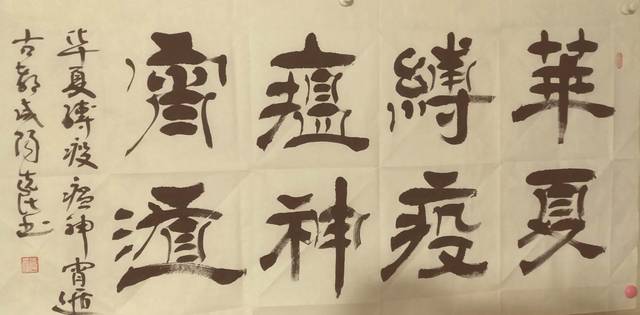 華夏
縛疫
瘟神
宵遁
华夏缚疫瘟神宵遁
古都咸阳
书